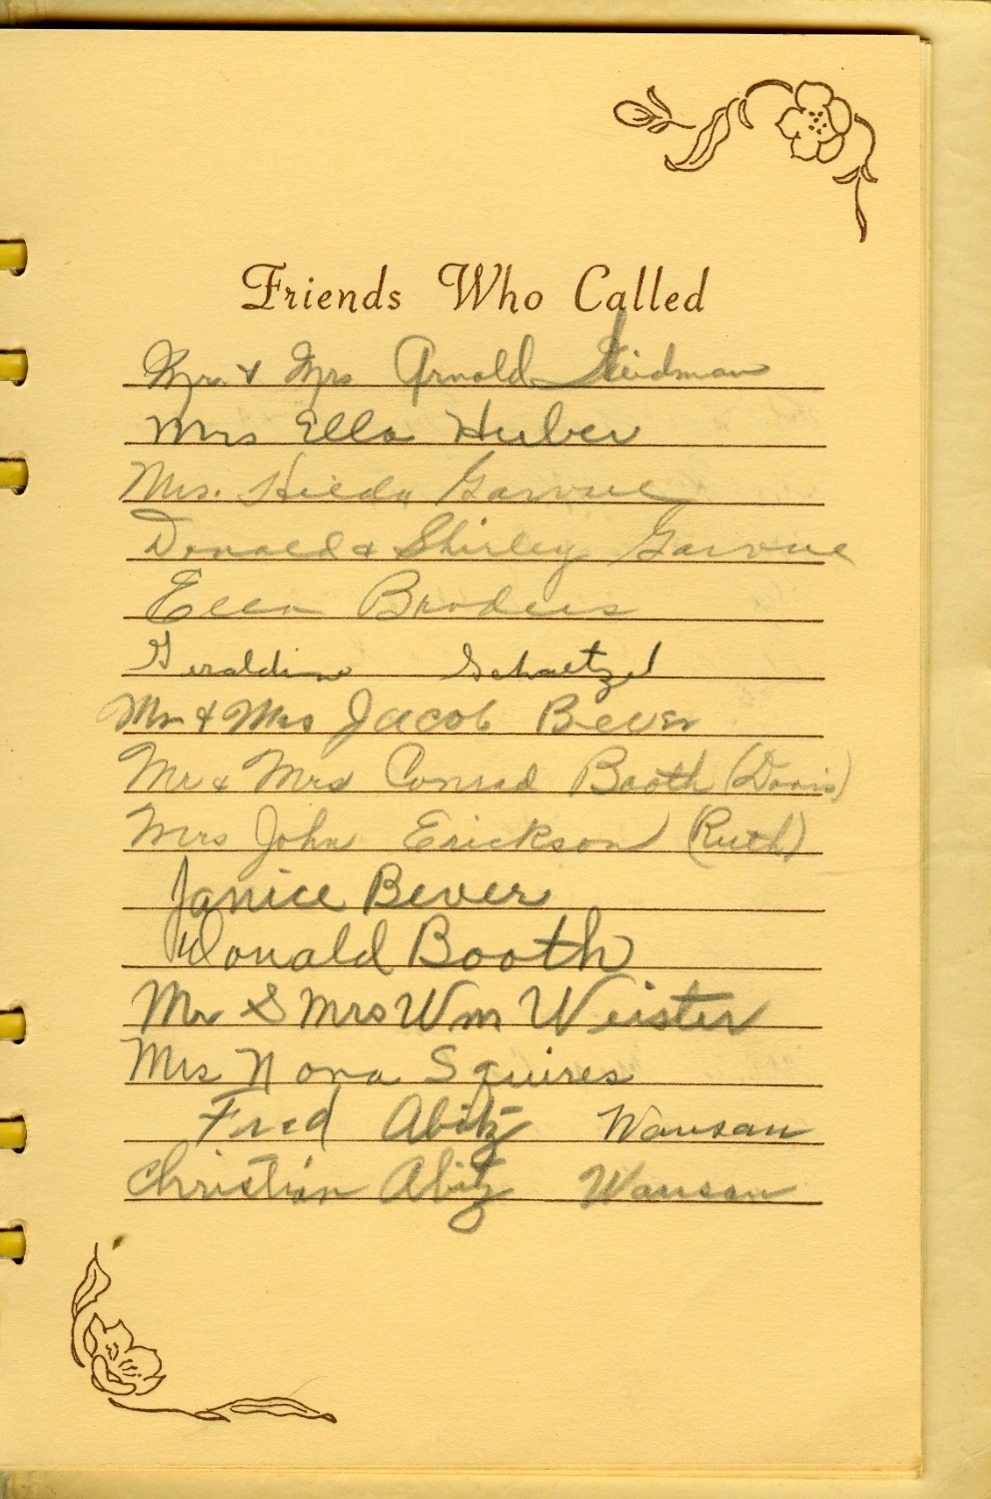 Friends Who Called
Mr. & Mrs Arnold
Mrs Ella Huber
Mrs. Hilda Garvue
Donald & Shirley Garvue
Ella Broders
Geraldine Schaetzel
Mr & Mrs Jacob Bever
Mr & Mrs Conrad Booth (Doris)
Mrs John Erickson (Ruth)
Janice Bever
Donald Booth
Mr & Mrs Wm Weister
Mrs Nona Squires
Fred Abitz Wausau
Christian Abitz Wausau